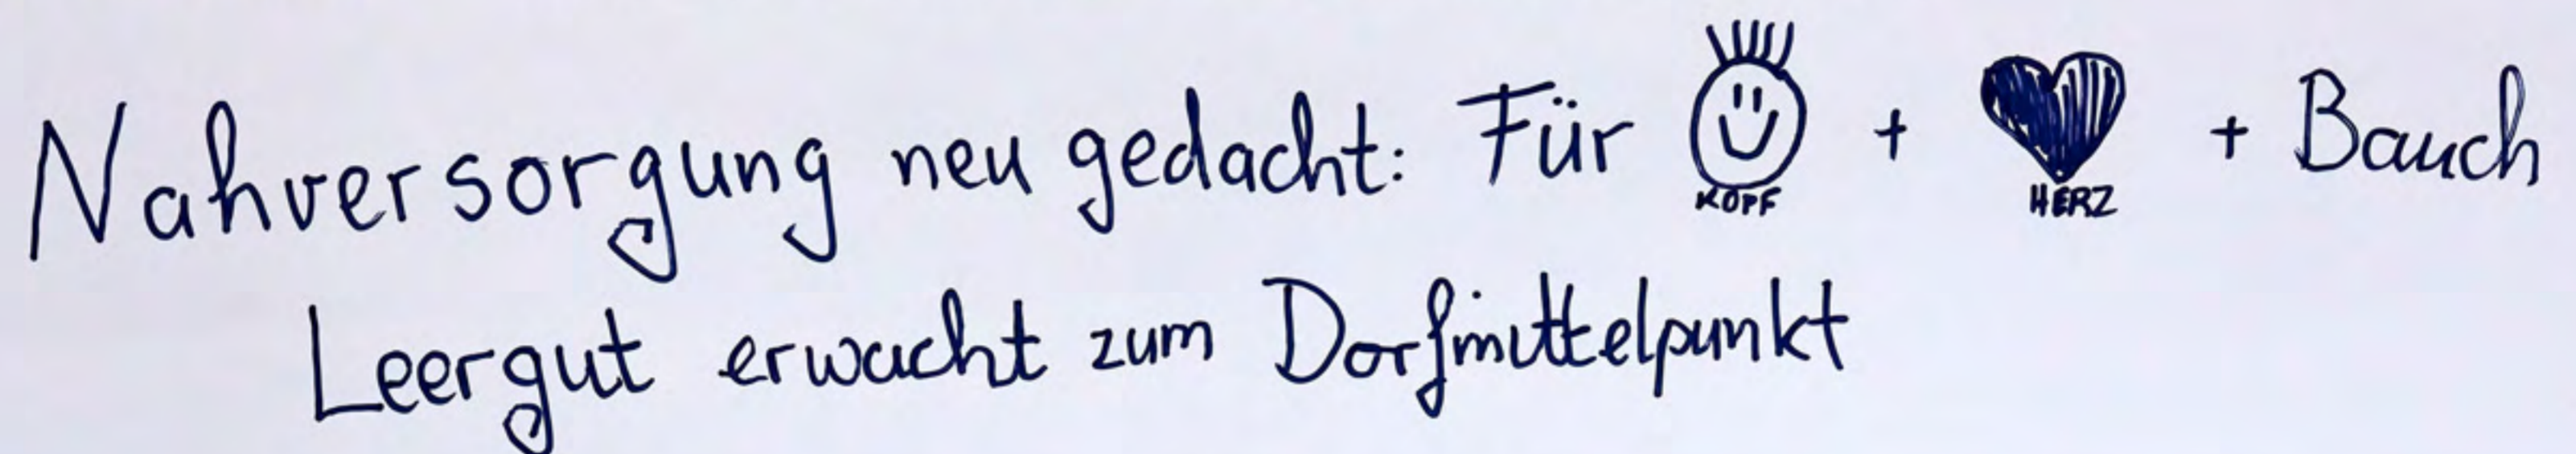 Nahversorgung neu gedacht: Für KOPF + HERZ + Bauch
Leergut erwacht zum Dorfmittelpunkt